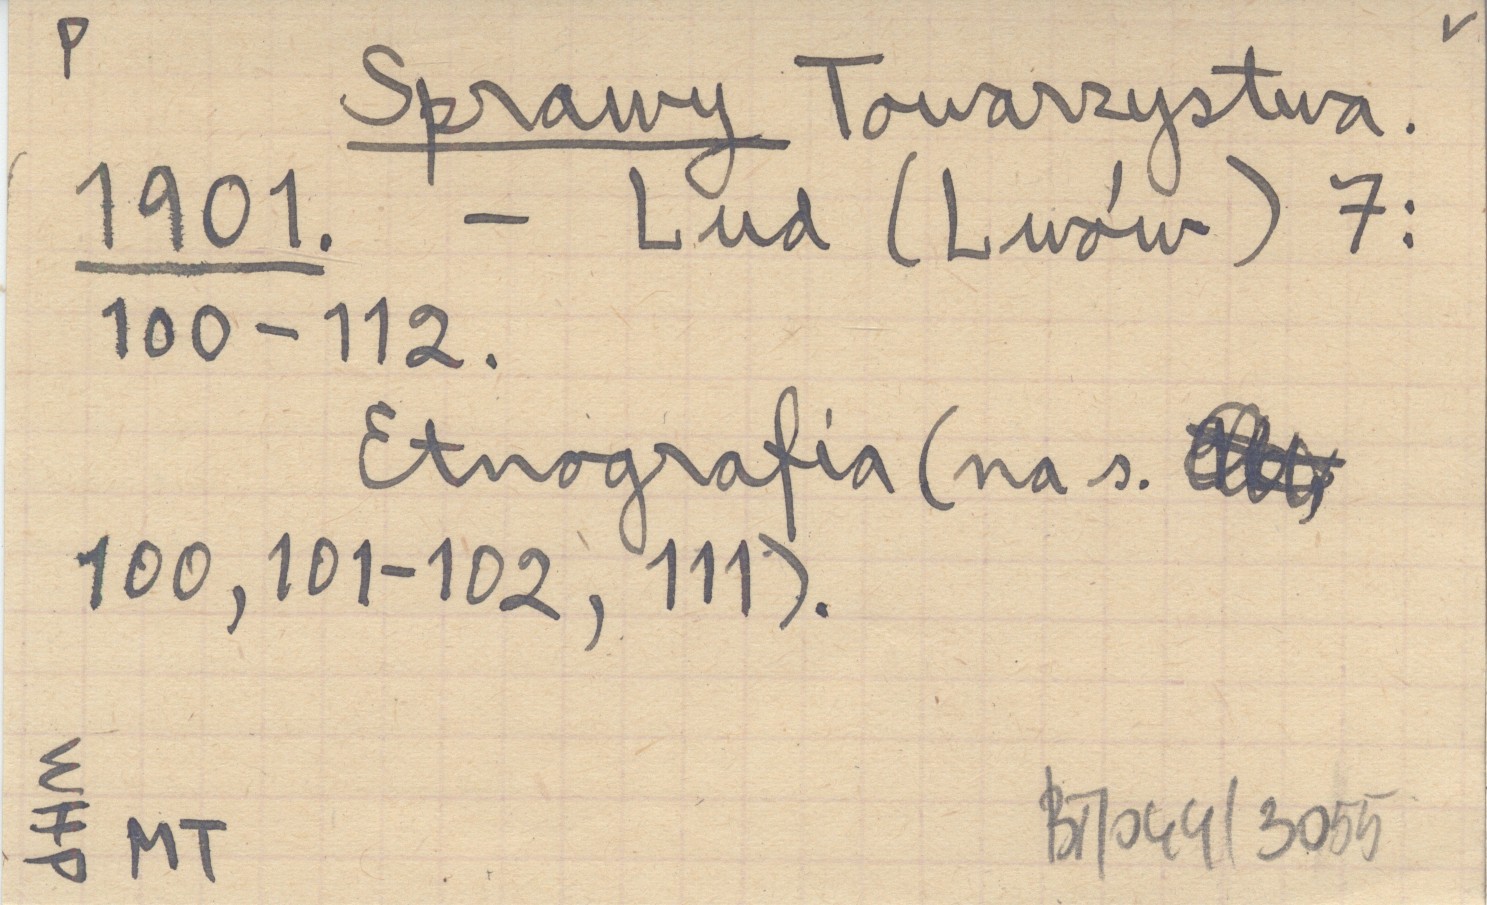 P
Sprawy Towarzystwa.
1901. – Lud (Lwów) 7:
100-112.
Etnografia (na s.
100, 101-102, 111).
WHP
MT
/3055